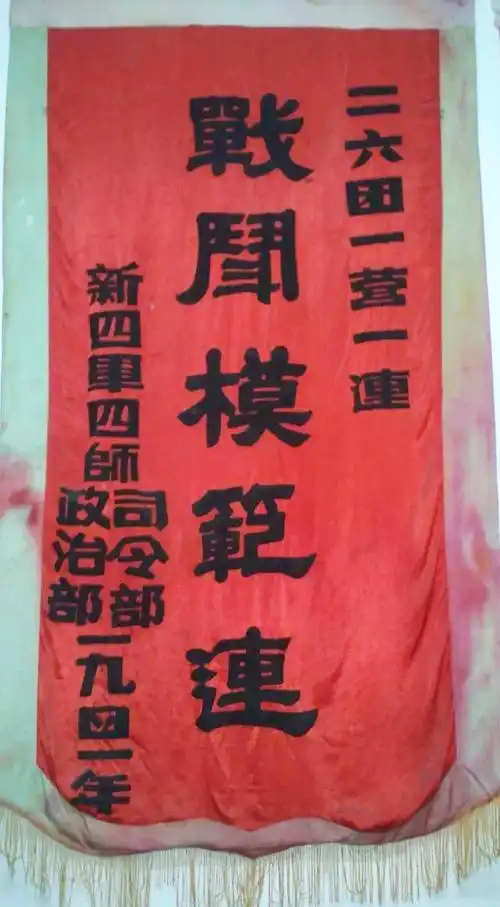 二六团一营一連
戰鬥模範連
新四軍四師
司令部
政治部
一九四一年